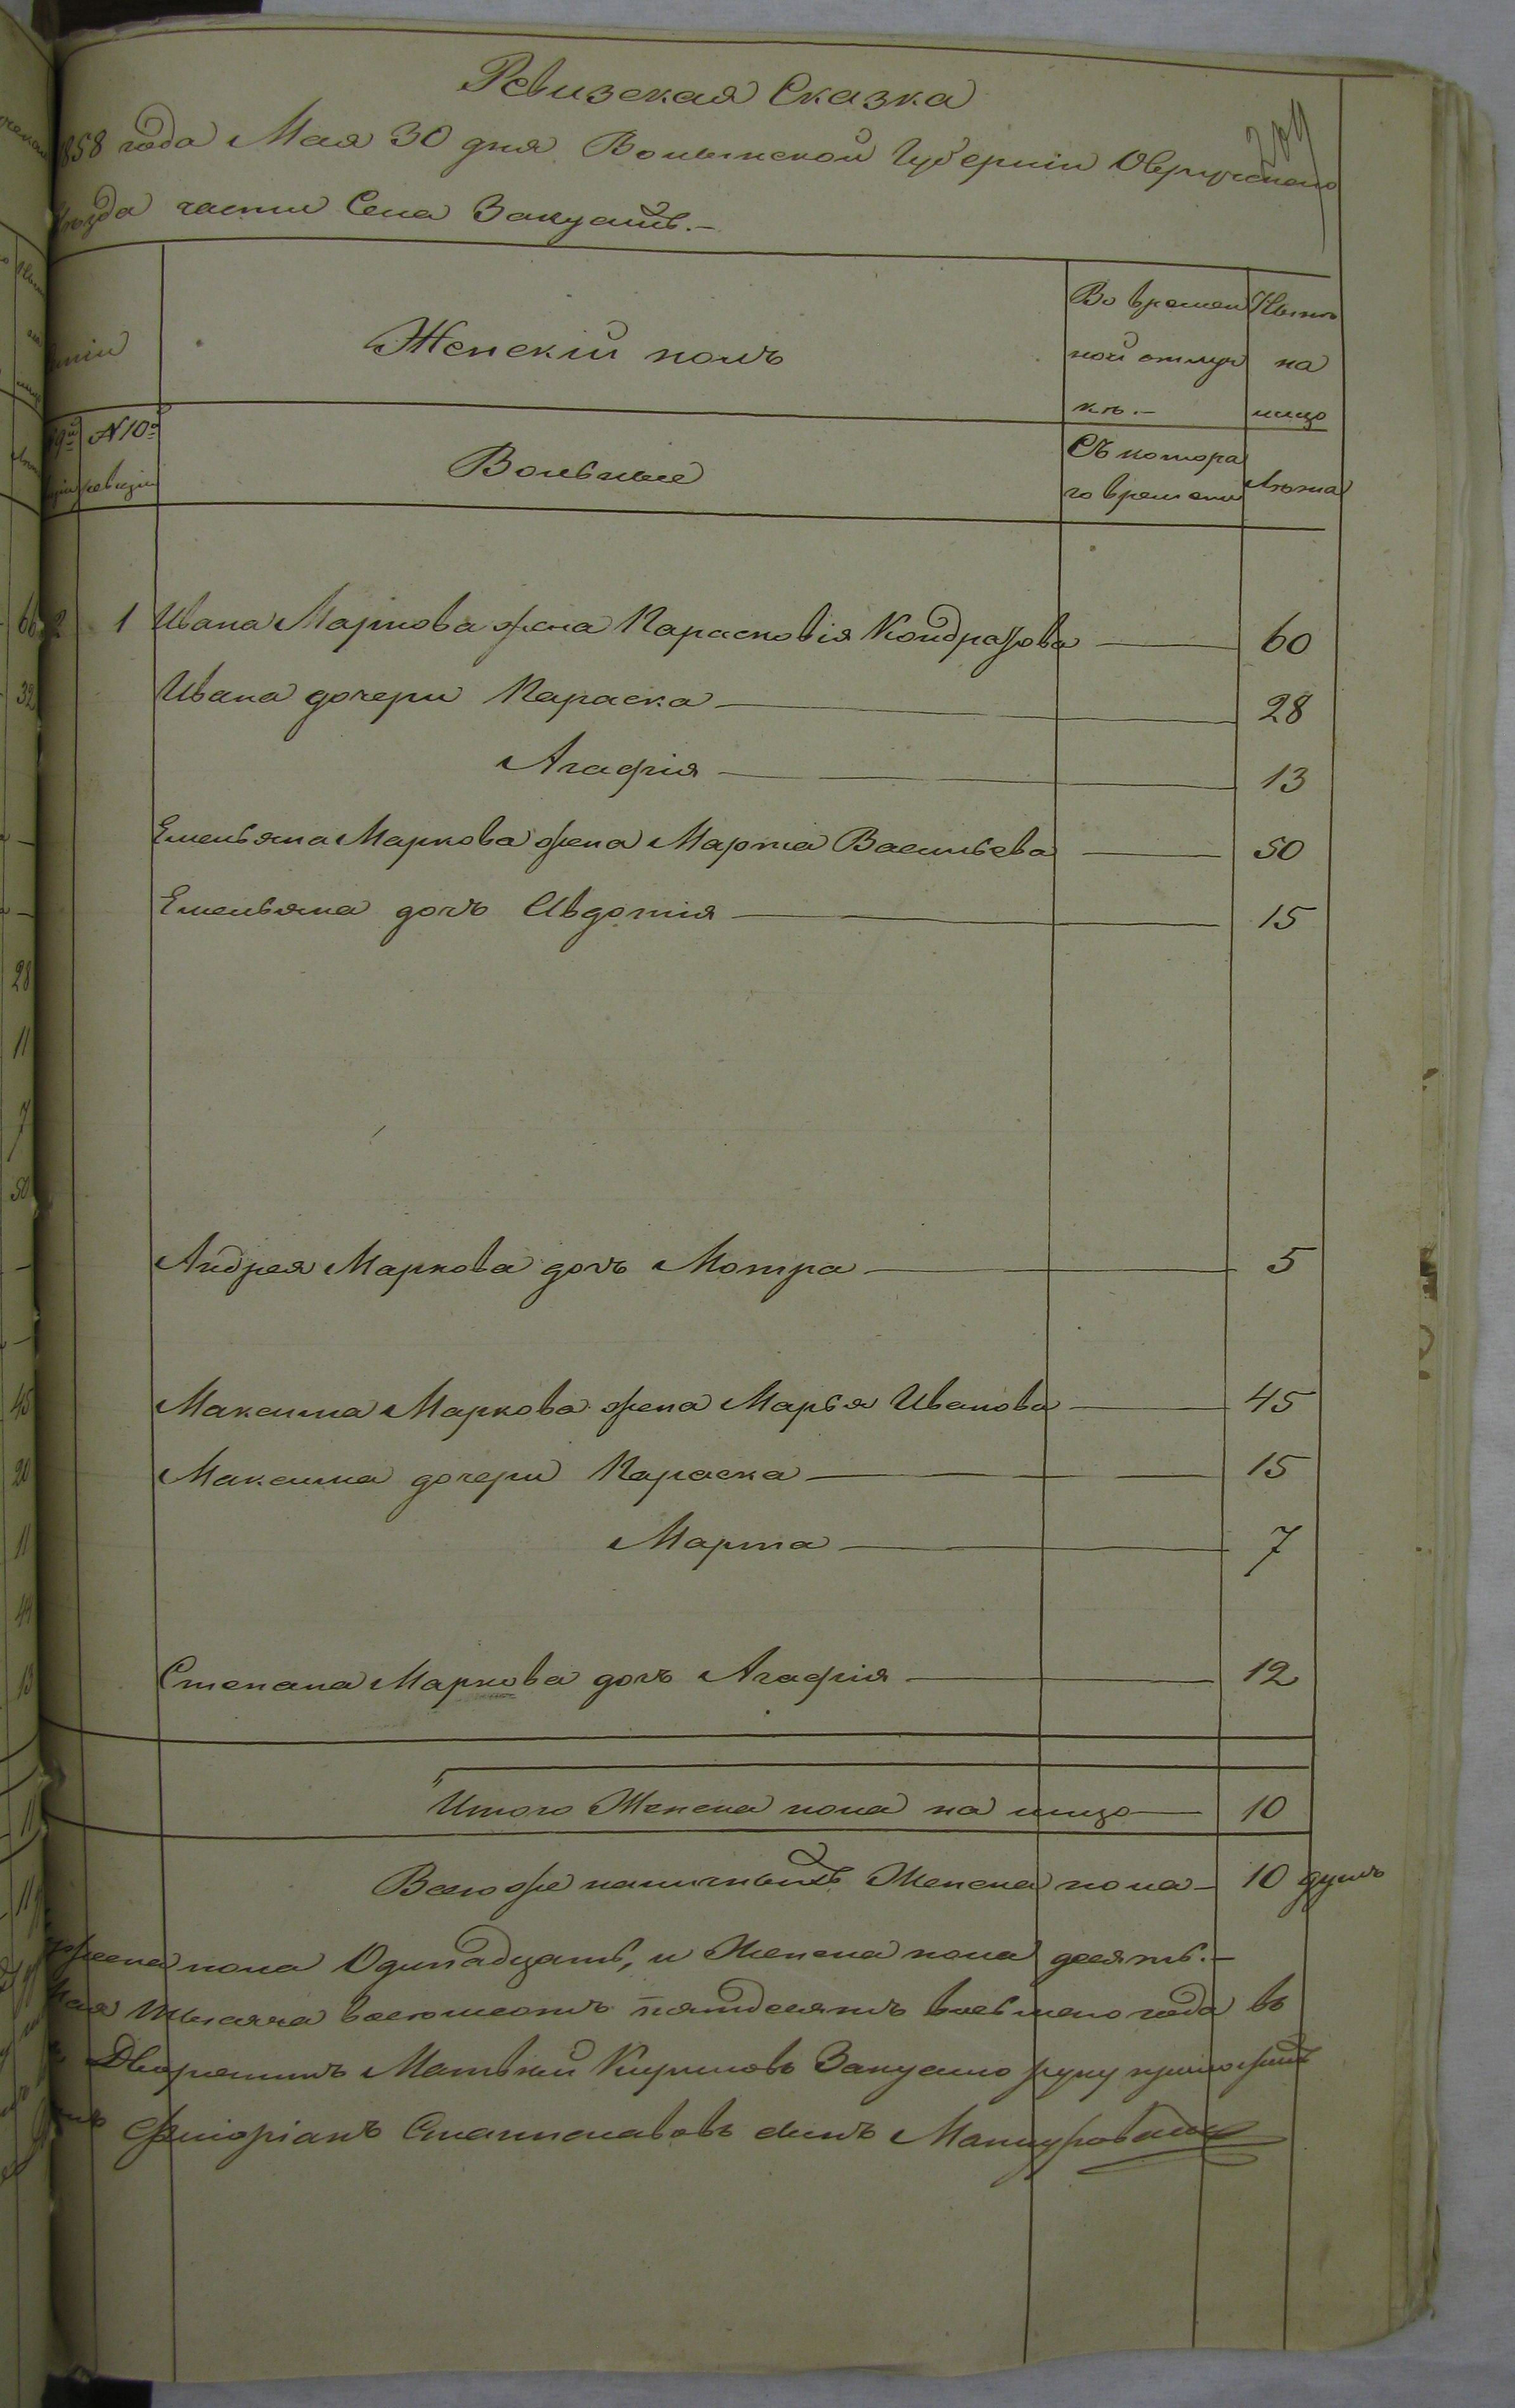 Ревизская Сказка
209
858 года Мая 30 дня Волынской Губерніи Овручскаго
Уезда части Села Закусилъ.–
Женскій полъ
Во времен
ной отлуч
кѣ.–
Нынѣ
на
лицо
№ 10й
ревизіи
Вольные
Съ котора
го времени
Лѣта
1 Ивана Маркова жена Парасковія Кондратова 60
Ивана дочери Параска 28
Агафія 13
Емельяна Маркова жена Марта Васильева 50
Емельяна дочь Авдотія 15
Андрея Маркова дочь Мотра 5
Максима Маркова жена Марья Иванова 45
Максима дочери Параска 15
Марта 7
Степана Маркова дочь Агафія 12
Итого Женска пола на лицо 10
Всего же наличныхъ Женска пола 10 душъ
пола Одинадцать, и Женска пола десять.–
Мая тысяча восемьсотъ пятдесятъ восьмого года въ
Дворянинъ Матвѣй Кириловъ Закусило руку приложилъ
Флоріанъ Станиславовъ сынъ